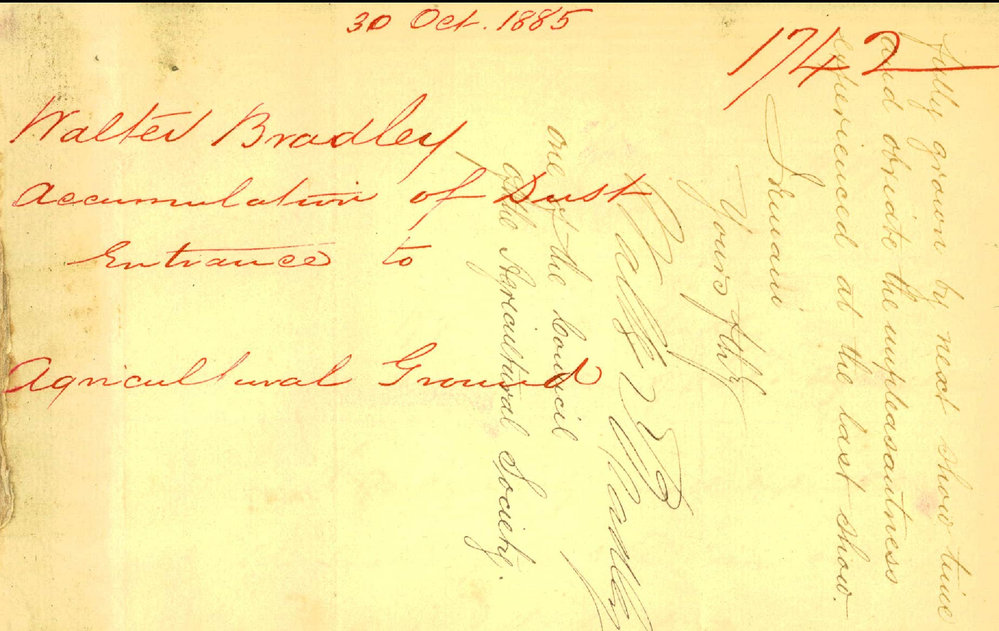 30 Oct. 1885
1742
Walter Bradley
Accumulation of Dust
Entrance to
Agricultural Ground
fully grown by next show time
and obviate the unpleasantness
experienced at the last show.
I remain
Yours
Bradley
one of the Council
of the Agricultural Society.